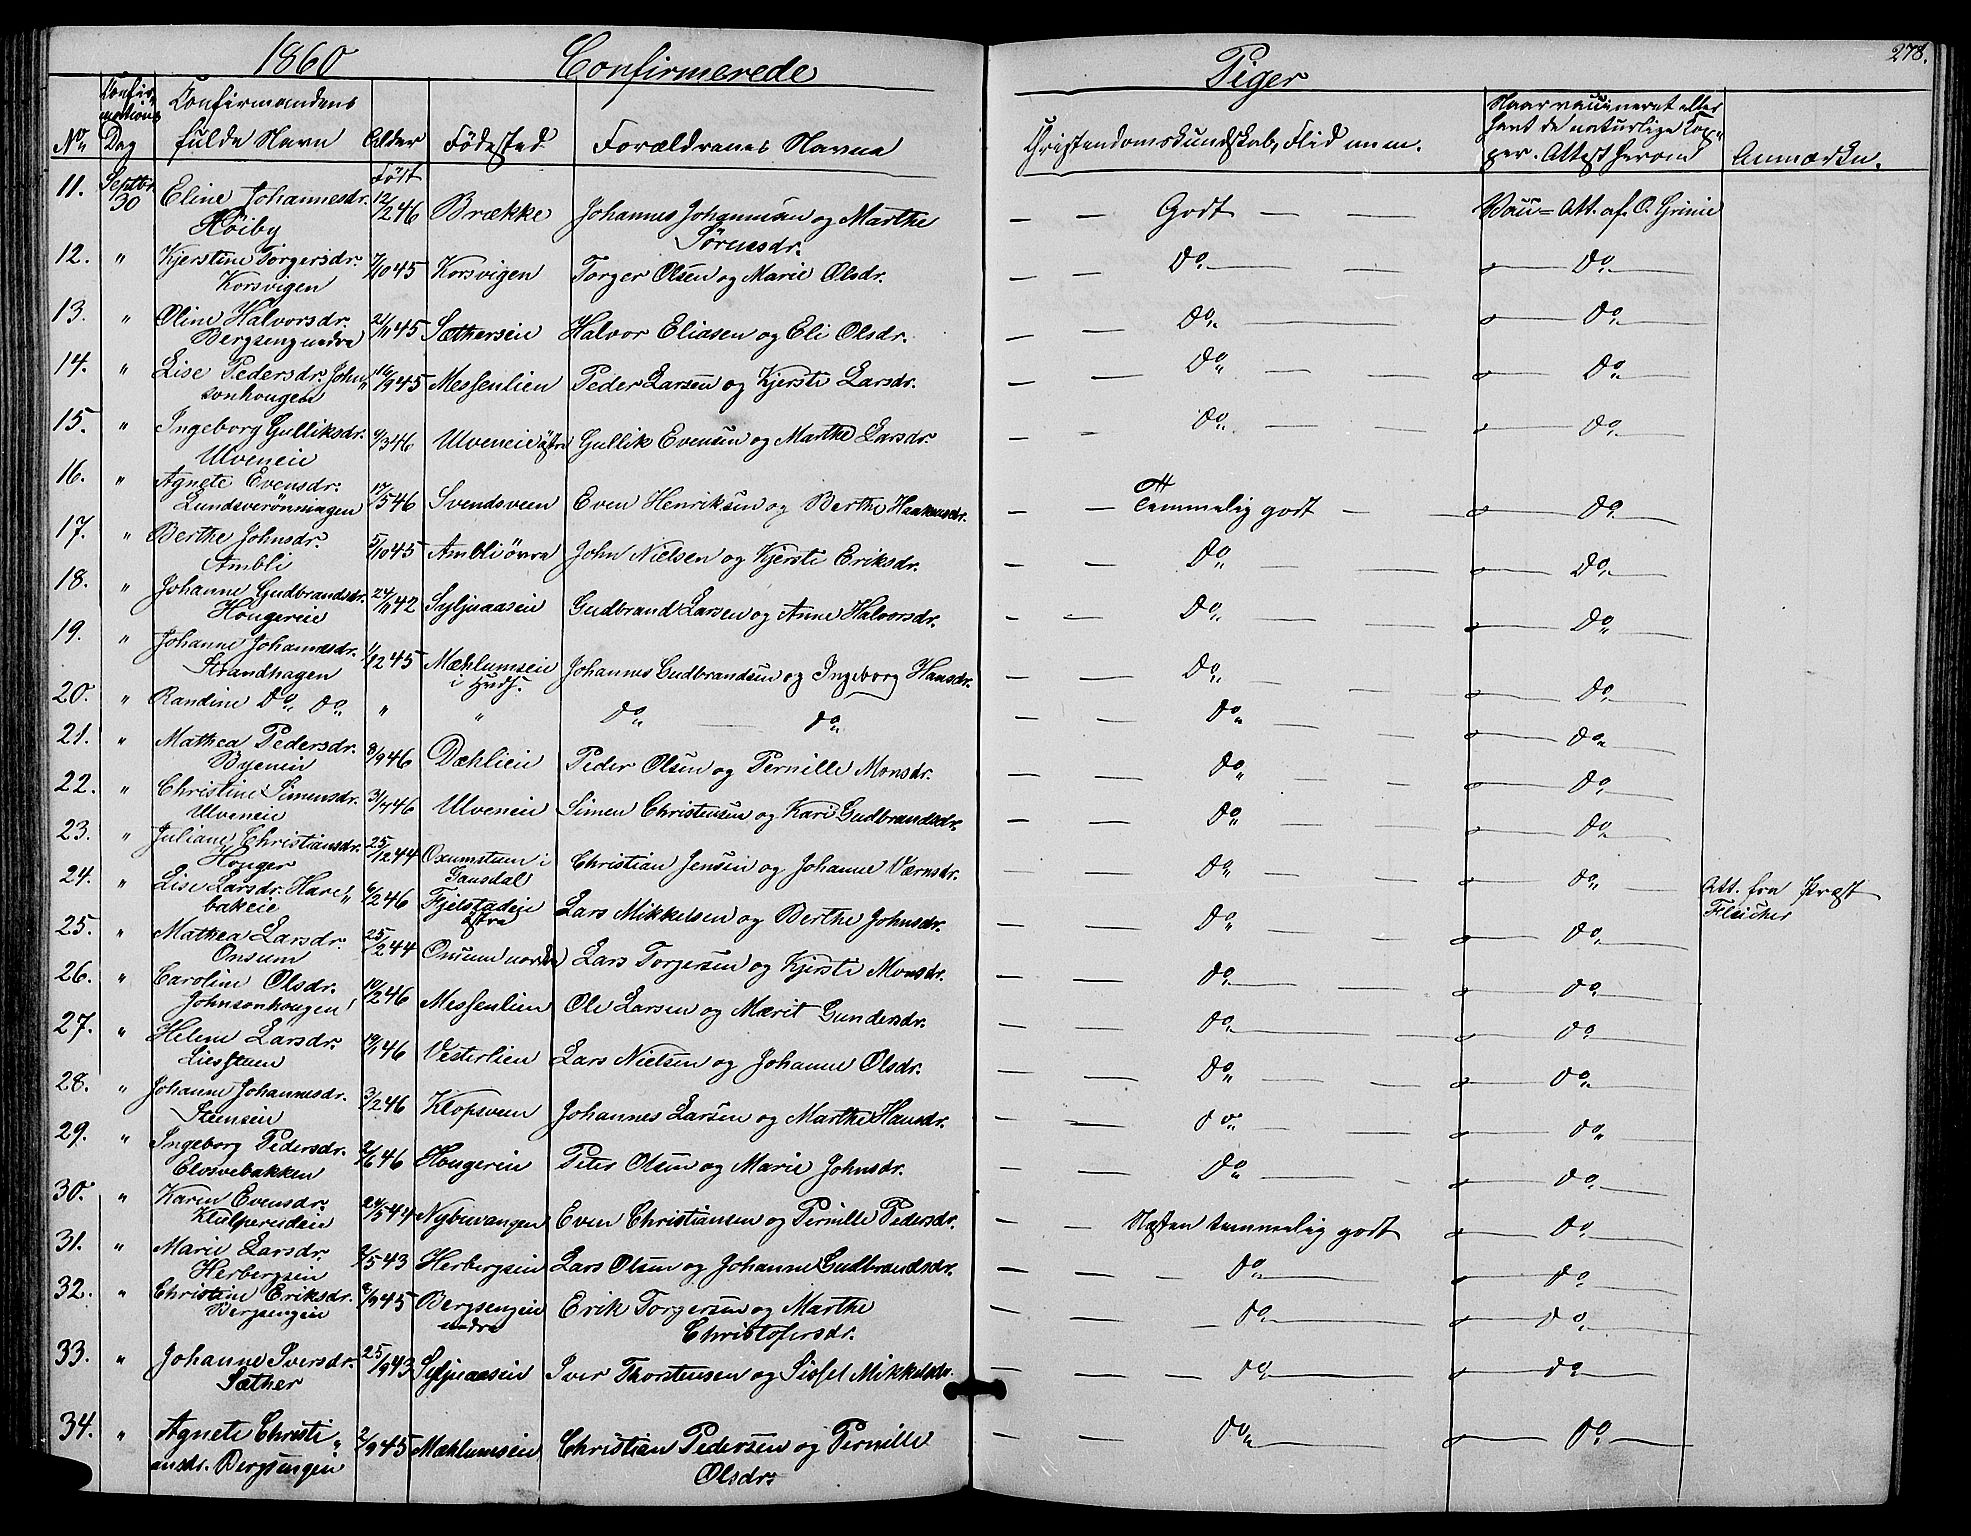 1860 Confirmerede Piger 278.
No. Confirmations Dag Confirmandens fulde Navn Alder Fødested Forældrenes Navne Christendomskundskab, Flid m.m. Naar vaccineret eller havt de naturlige Kopper. Attest herom Anmærkn.
Født
11. Septbr 30 Eline Johannesdr. 12/2 46 Brække Johannes Johannesen og Marthe — — Godt — — Vacc= Att. af O. Grime
Høiby Sørensdr.
12. " Kjerstine Torgersdr. 7/10 45 Korsvigen Torger Olsen og Marie Olsdr. — — Do — — Do
Korsvigen
13. " Oline Halvorsdr. 21/11 45 Sætherseie Halvor Eliasen og Eli Olsdr. — Do — Do
Bergseng nedre
14. " Lise Pedersdr. John" 16/9 45 Messenlien Peder Larsen og Kjersti Larsdr. — — Do — — Do
sonhougen
15. " Ingeborg Gulliksdr. 6/3 46 Ulveneie østre Gullik Evensen og Marthe Larsdr. — — Do — — Do
Ulveneie
16. " Agnete Evensdr. 17/5 46 Svendsveen Even Henriksen og Berthe Haakensdr. — — Temmelig godt — — Do
Lundsverønningen
17. " Berthe Johnsdr. 5/10 45 Ambli øvre John Nielsen og Kjersti Eriksdr. — — Do — — Do
Ambli
18. " Johanne Gudbrandsdr. 24/11 42 Syljuaaseie Gudbrand Larsen og Anne Halvorsdr. — — Do — — Do
Hougereie
19. " Johanne Johannesdr. 1/12 45 Mæhlumseie Johannes Gudbrandsen og Ingeborg Hansdr. — — Do — — Do
Strandhagen i
20. " Randine Do Do " " Do — Do — — Do — — Do
21. " Mathea Pedersdr. 8/9 46 Dæhlieie Peder Olsen og Pernille Monsdr. — — Do — — Do
Byeneie
22. " Christine Simensdr. 31/7 46 Ulveneie Simen Christensen og Kari Gudbrandsdr. — — Do — — Do
Ulveneie
23. " Juliane Christiansdr. 25/12 44 Oxumstuen i Christian Jensen og Johanne Værnsdr. — — Do — — Do
Houger Gausdal
24. " Lise Larsdr. Hare" 6/2 46 Fjelstadeie Lars Mikkelsen og Berthe Johnsdr. — — Do — — Do Att. fra Præst
bakeie østre Fleischer
25. " Mathea Larsdr. 25/2 44 Onsum nordre Lars Torgersen og Kjersti Monsdr. — — Do — — Do
Onsum
26. " Caroline Olsdr. 10/2 46 Messenlien Ole Larsen og Marit Gundersdr. — — Do — — Do
Johnsonhougen
27. " Helene Larsdr. 19/1 46 Vesterlien Lars Nielsen og Johanne Olsdr. — — Do — — Do
28. " Johanne Johannesdr. 3/2 46 Klopsveen Johannes Larsen og Marthe Hansdr. — — Do — — Do
Steenseie
29. " Ingeborg Pedersdr. 2/6 46 Hougereie Peter Olsen og Marie Johnsdr. — — Do — — Do
Elosvebakken
30. " Karen Evensdr. 24/5 44 Nybuvangen Even Christiansen og Pernille Pedersdr. — — Næsten temmelig godt — Do
31. " Marie Larsdr. 2/5 43 Herbergseie Lars Olsen og Johanne Gudbrandsdr. — — Do — Do
Herbergseie
32. " Christine Eriksdr. 6/9 45 Bergsengeie Erik Torgersen og Marthe — — Do — Do
Bergsengeie nedre Christofersdr.
33. " Johanne Iversdr. 25/9 43 Syljuaaseie Iver Thorstensen og Sissel Mikkelsdr. — — Do — Do
Sæther
34. " Agnete Christi" 2/9 45 Mæhlumseie Christian Pedersen og Pernille — — Do — Do
ansdr. Bergsengen Olsdr.